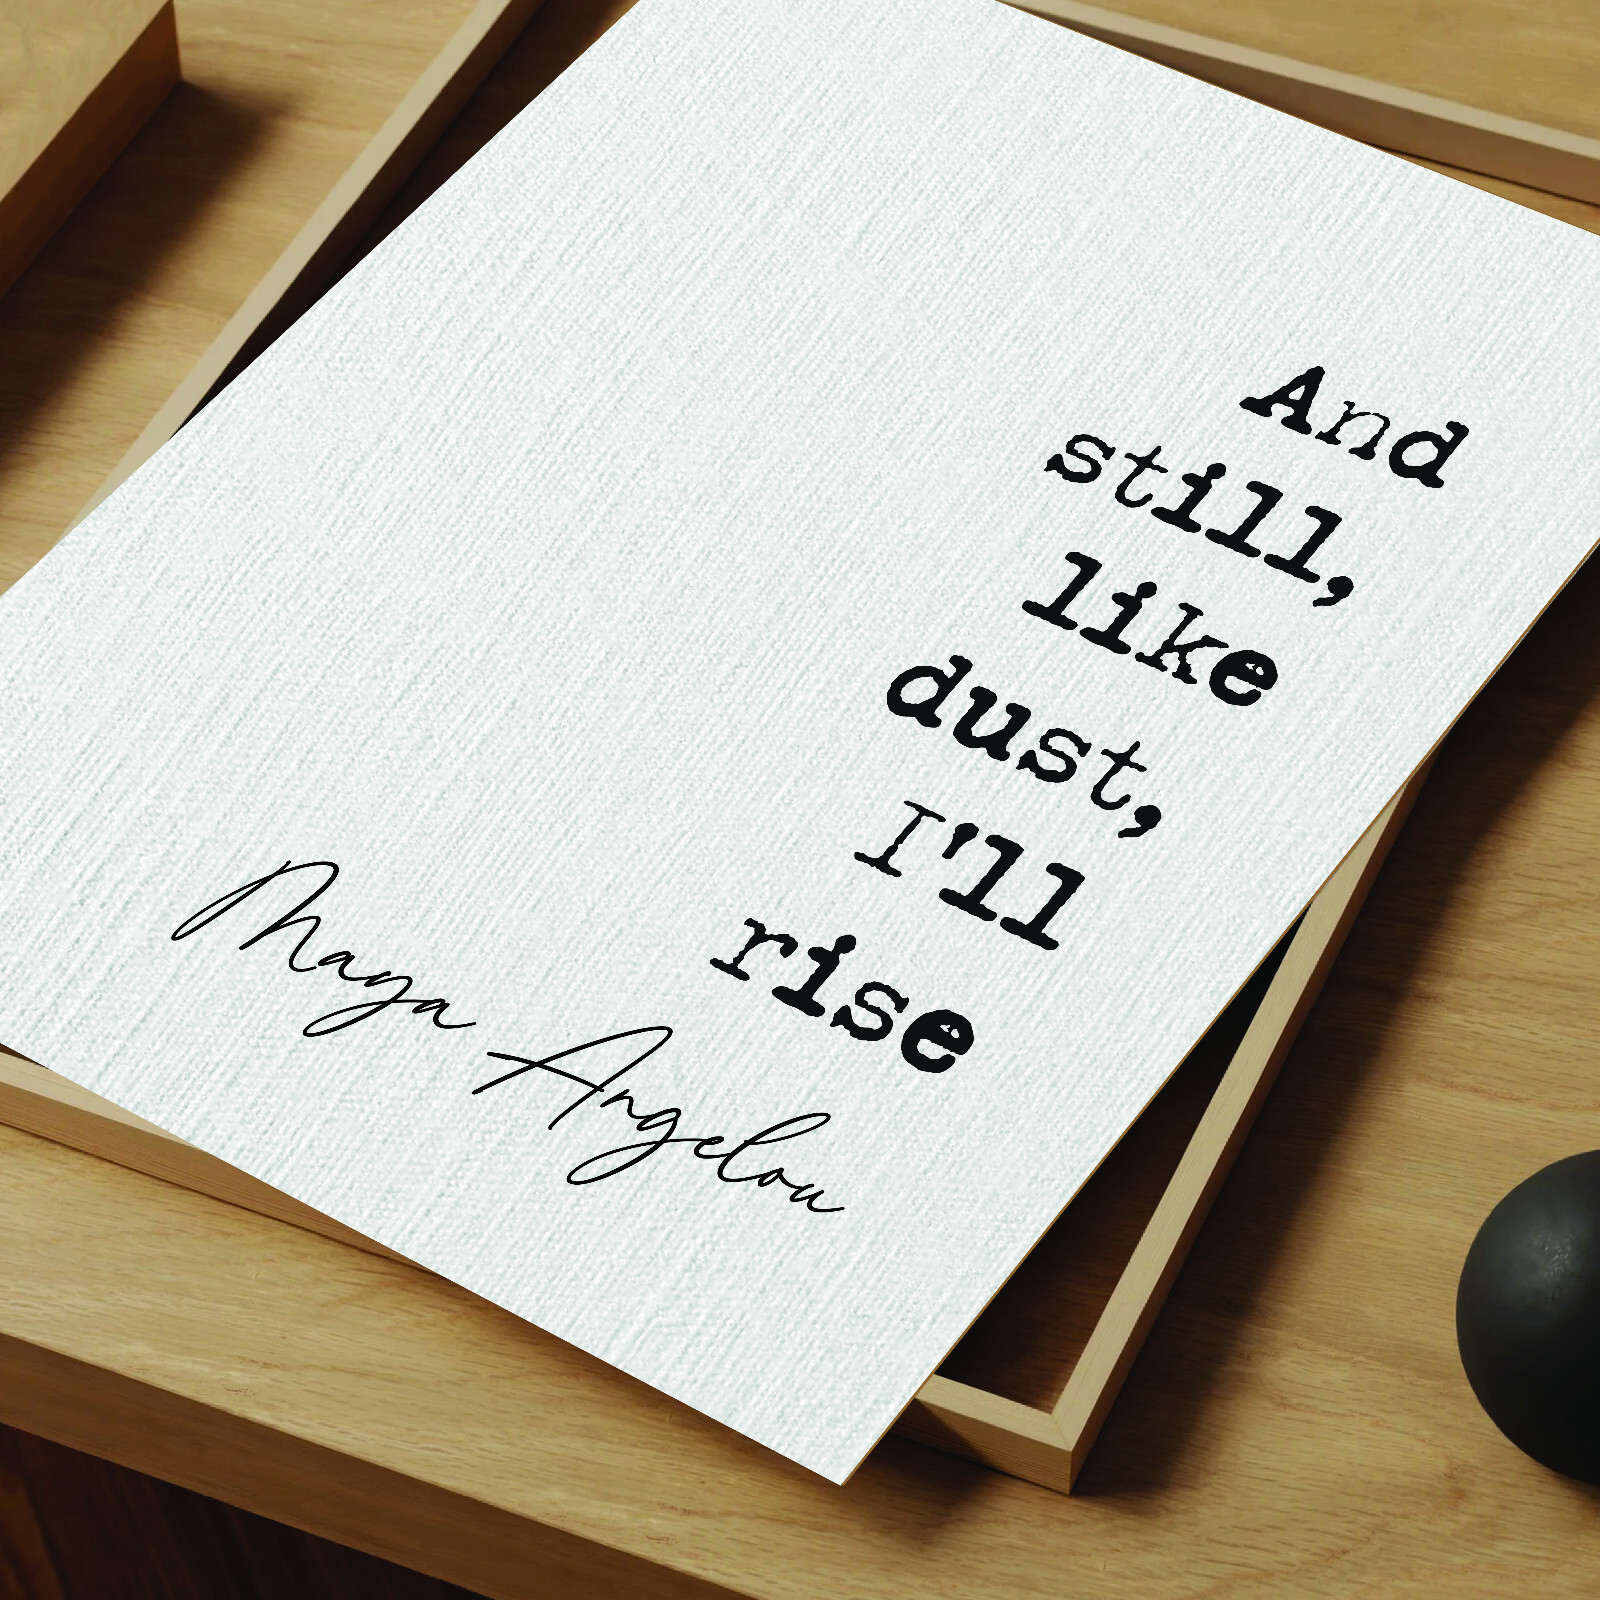 And
still,
like
dust,
I'll
rise
Maya Angelou